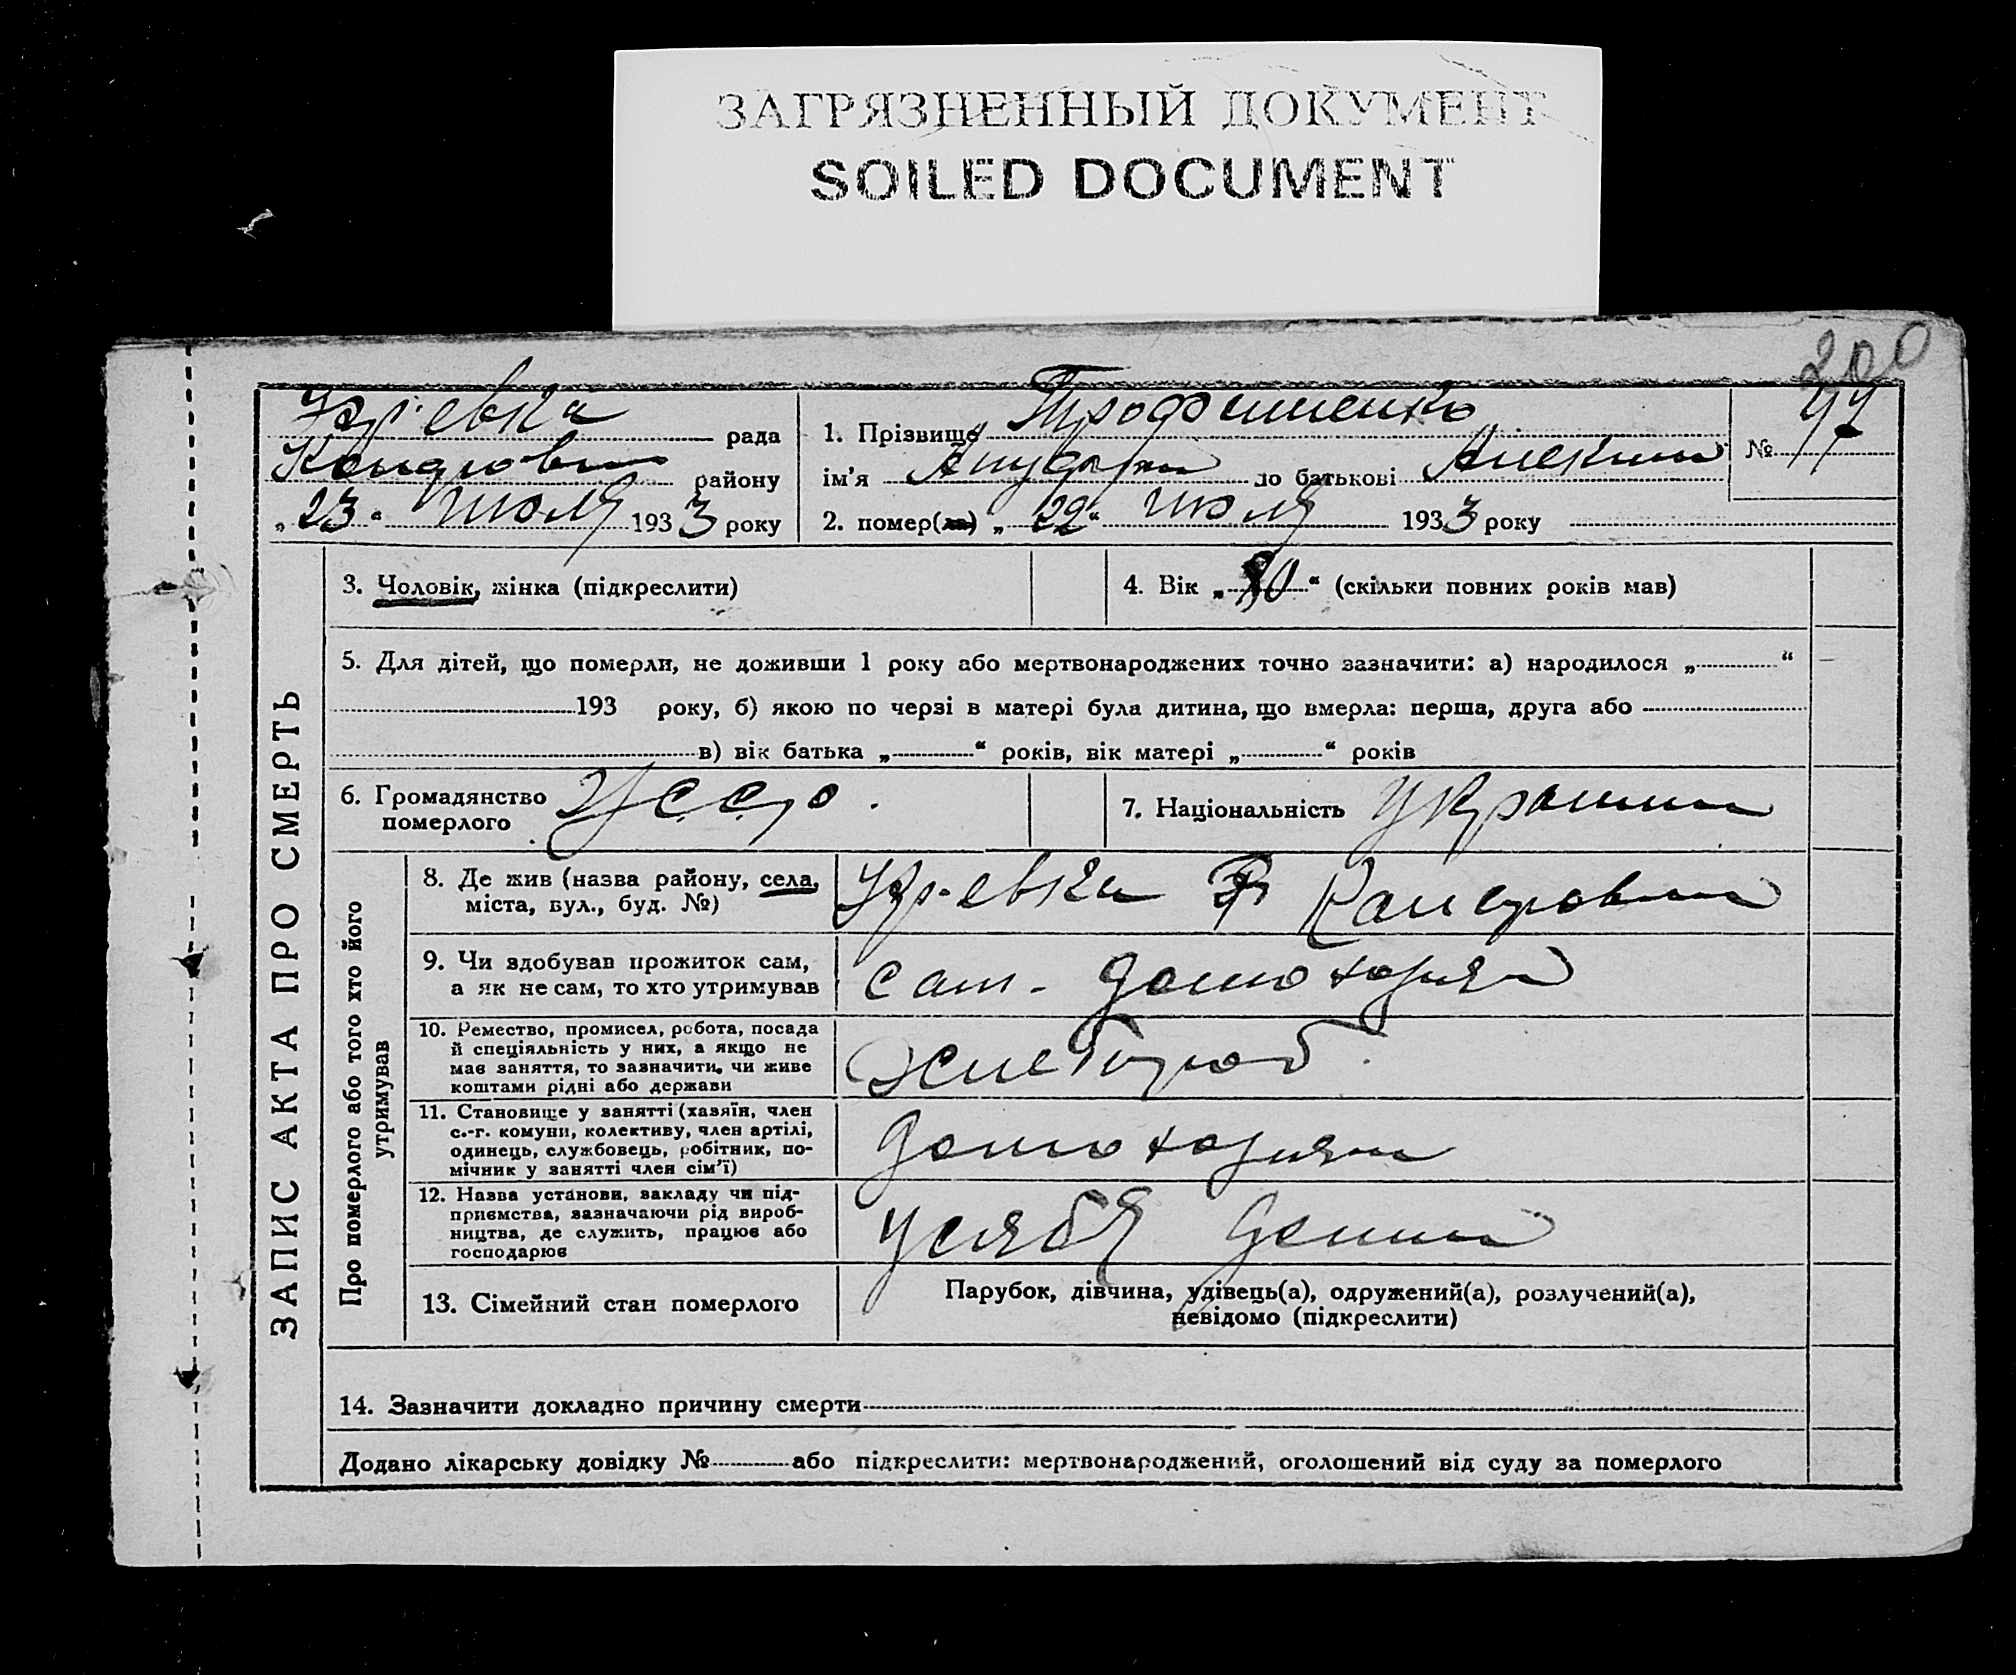 ЗАГРЯЗНЕННЫЙ ДОКУМЕНТ
SOILED DOCUMENT
200
рада
району
„23“ июля 1933 року
1. Прізвище Трофименко
ім'я по батькові
№ 47
2. помер(ла) „22“ июля 1933 року
ЗАПИС АКТА ПРО СМЕРТЬ
3. Чоловік, жінка (підкреслити)
4. Вік „80“ (скільки повних років мав)
5. Для дітей, що померли, не доживши 1 року або мертвонароджених точно зазначити: а) народилося „ “
193 року, б) якою по черзі в матері була дитина, що вмерла: перша, друга або
в) вік батька „ “ років, вік матері „ “ років
6. Громадянство
померлого
УССР.
7. Національність
Про померлого або того хто його
утримував
8. Де жив (назва району, села,
міста, вул., буд. №)
9. Чи здобував прожиток сам,
а як не сам, то хто утримував
сам.
10. Ремество, промисел, робота, посада
й спеціяльність у них, а якщо не
має заняття, то зазначити, чи живе
коштами рідні або держави
хлебороб.
11. Становище у занятті (хазяїн, член
с.-г. комуни, колективу, член артілі,
одинець, службовець, робітник, по-
мічник у занятті член сім'ї)
12. Назва установи, закладу чи під-
приємства, зазначаючи рід вироб-
ництва, де служить, працює або
господарює
у себя дома
13. Сімейний стан померлого
Парубок, дівчина, удівець(а), одружений(а), розлучений(а),
невідомо (підкреслити)
14. Зазначити докладно причину смерти
Додано лікарську довідку № або підкреслити: мертвонароджений, оголошений від суду за померлого